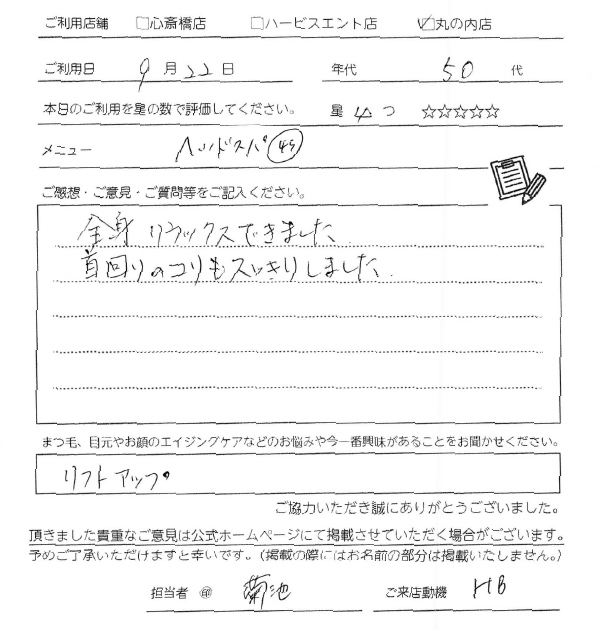 ご利用店舗 □心斎橋店 □ハービスエント店 ☑丸の内店
ご利用日 9月22日 年代 50代
本日のご利用を星の数で評価してください。 星 4つ ☆☆☆☆☆
メニュー ヘッドスパ 45
ご感想・ご意見・ご質問等をご記入ください。
全身リラックスできました
首回りのコリもスッキリしました
まつ毛、目元やお顔のエイジングケアなどのお悩みや今一番興味があることをお聞かせください。
リフトアップ。
ご協力いただき誠にありがとうございました。
頂きました貴重なご意見は公式ホームページにて掲載させていただく場合がございます。
予めご了承いただけますと幸いです。（掲載の際にはお名前の部分は掲載いたしません。）
担当者 ㊞ 菊池 ご来店動機 HB